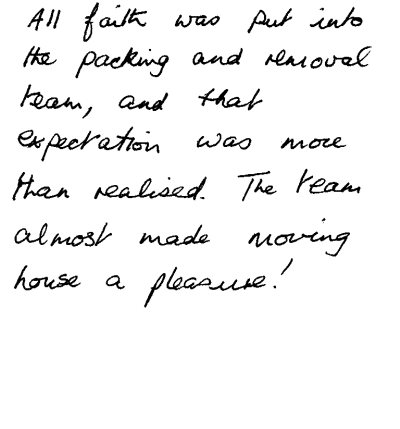 All faith was put into
the packing and removal
team, and that
expectation was more
than realised. The team
almost made moving
house a pleasure!